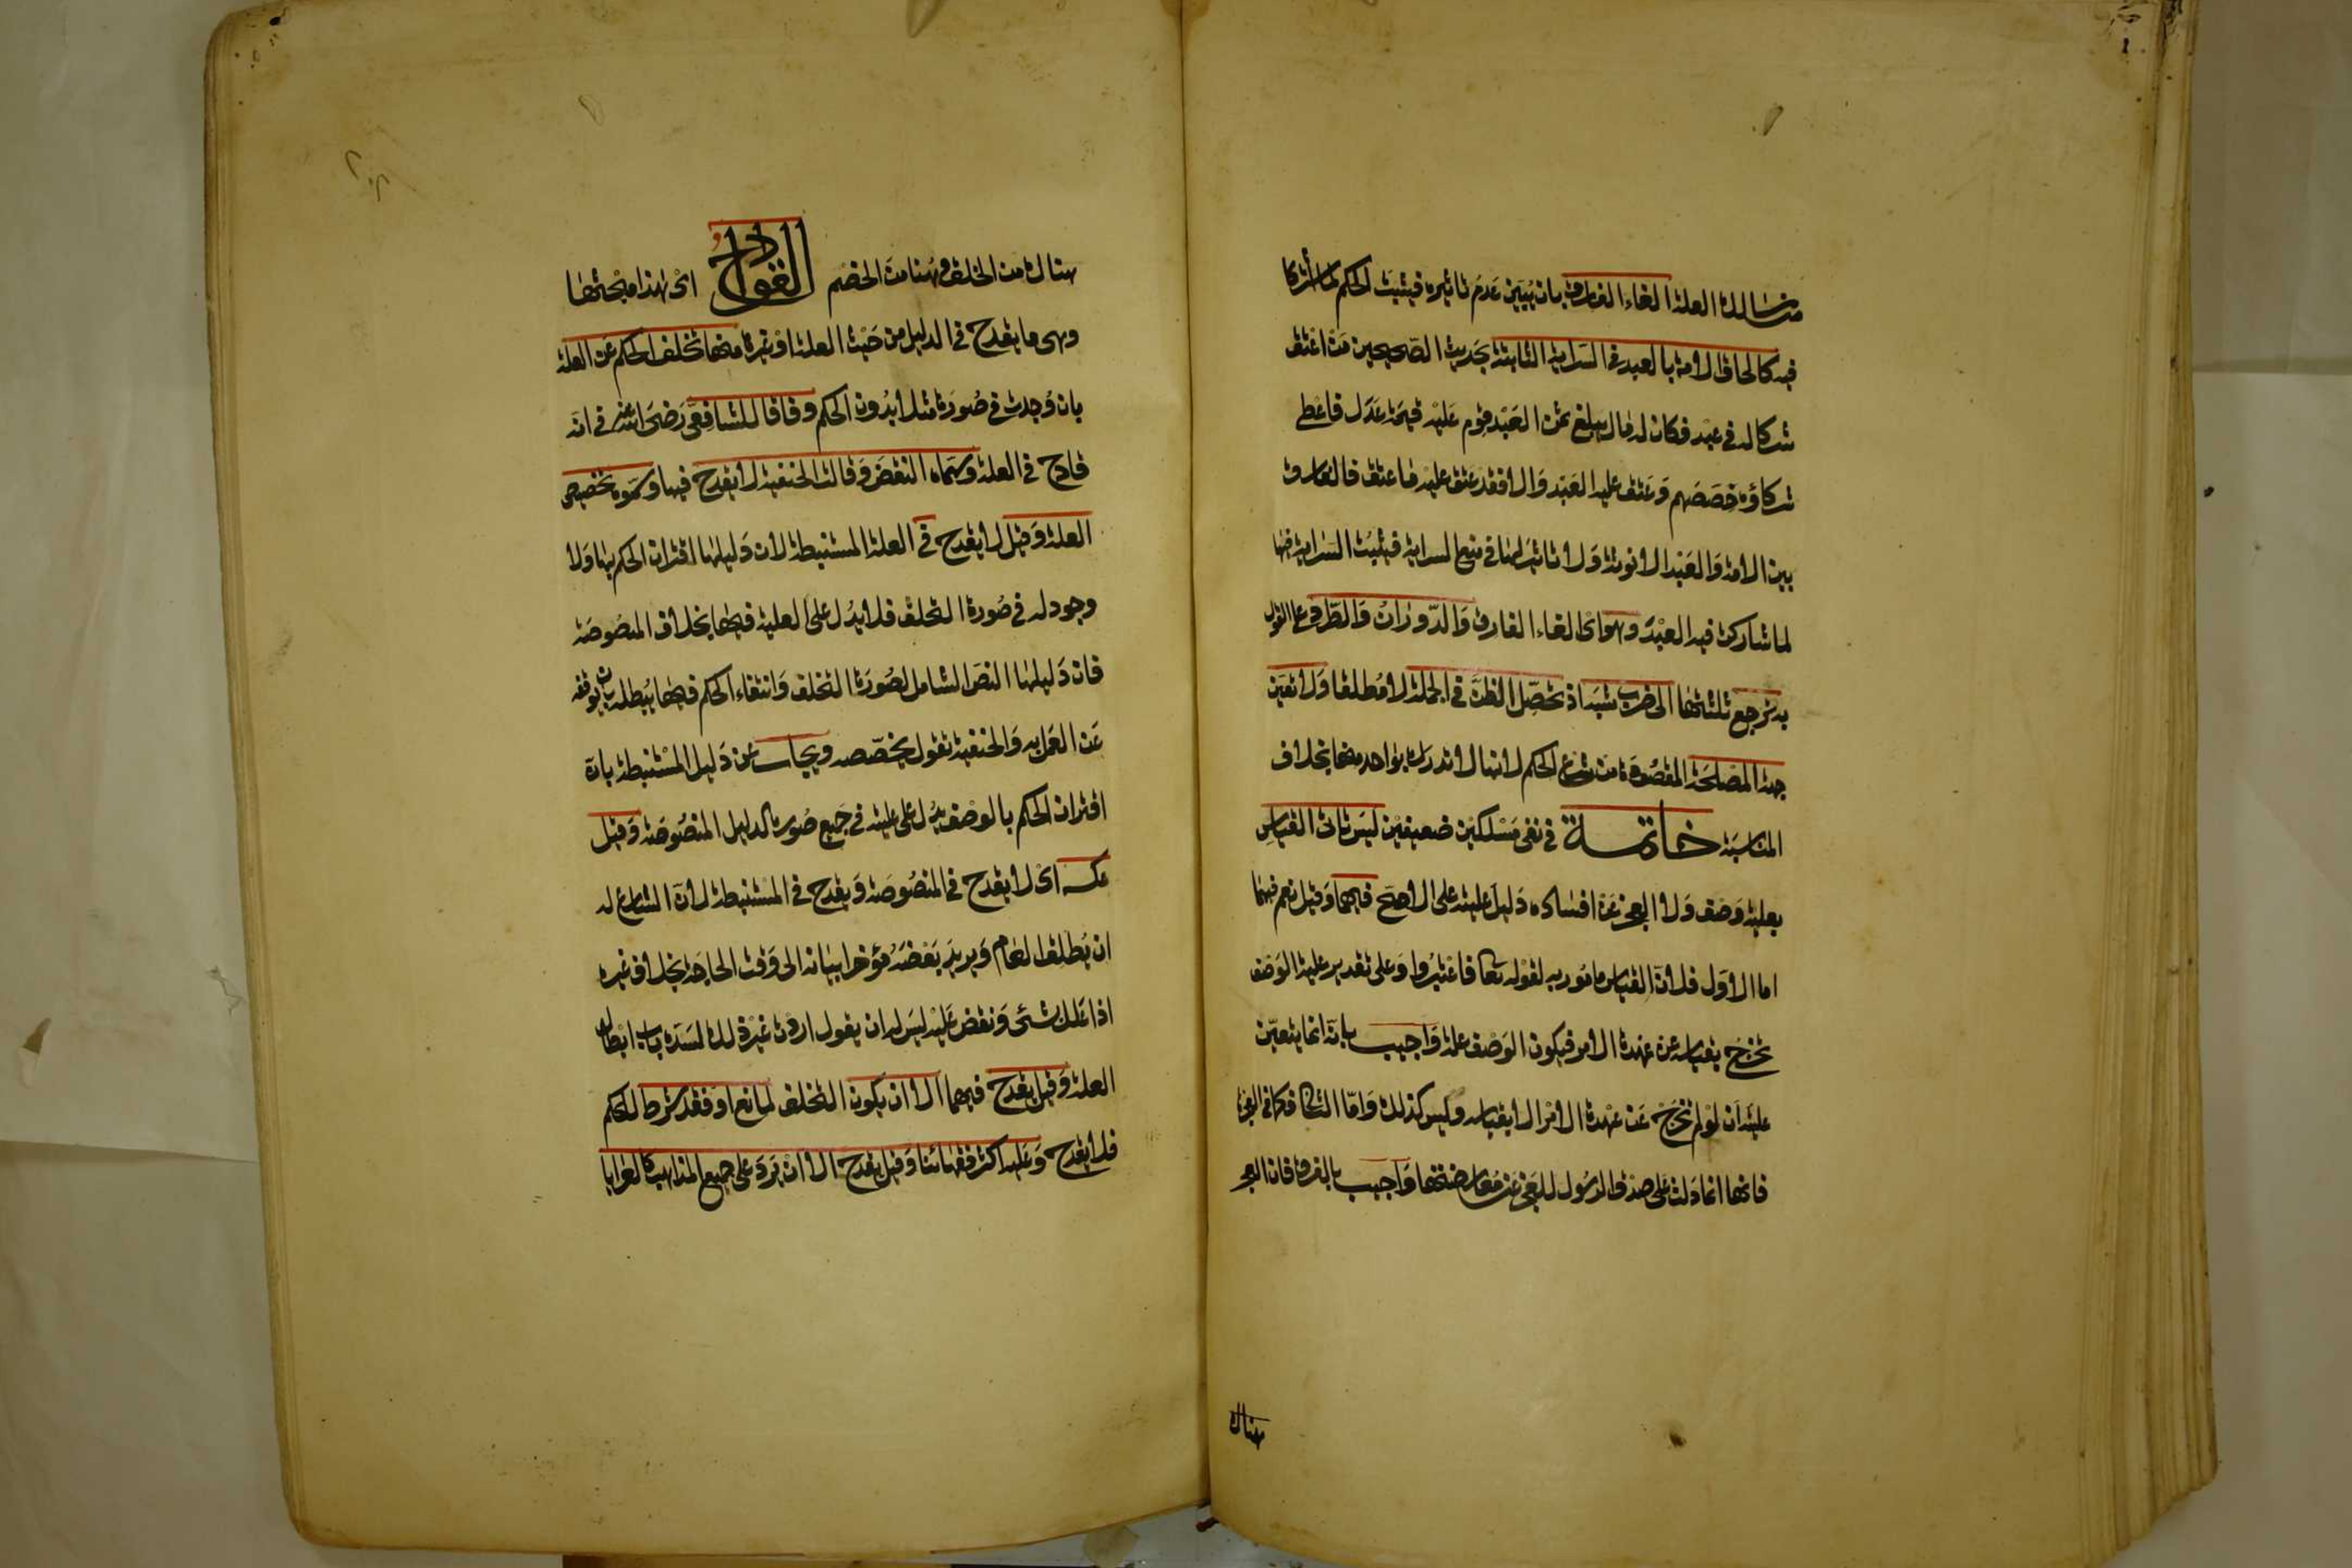 من مسالك العلة الغاء الفارق بان يبين عدم تاثيره فيثبت الحكم لما اشتركا
فيه كالحاق الامة بالعبد في السراية الثابتة بحديث الصحيحين من اعتق
شركا له في عبد فكان له مال يبلغ ثمن العبد قوم عليه قيمة عدل فاعطى
شركاؤه حصصهم وعتق عليه العبد والا فقد عتق عليه ما عتق فالفارق
بين الامة والعبد الانوثة ولا تاثير لها في منع السراية فيثبت السراية فيها
لما شاركت فيه العبد وهو اى الغاء الفارق والدوران والطرد على القول
به ترجع ثلثتها الى ضرب شبه اذ تحصّل الظن في الجملة لا مطلقا ولا تعين
جهة المصلحة المقصودة من شرع الحكم لانها لا تدرك بواحد منها بخلاف
المناسبة خاتمة في نفى مسلكين ضعيفين ليس تاتى القياس
بعلية وصف ولا العجز عن افساده دليل عليته على الاصح فيهما وقيل نعم فيهما
اما الاول فلان القياس مامور به لقوله تعا فاعتبروا وعلى تقدير علية الوصف
تخرج بقياسه عن عهدة الامر فيكون الوصف علة واجيب بانه انما يتعين
عليته ان لو لم تخرج عن عهدة الامر الا بقياسه وليس كذلك وامّا الثا فكما في المعجزة
فانها انما دلت على صدق الرسول للعجز عن معارضتها واجيب بالفرق فان العجز
هناك
هناك من الخلق وهنا من الخصم القوادح اى هذا مبحثها
وهى ما يقدح في الدليل من حيث العلة او غيره منها تخلف الحكم عن العلة
بان وجدت في صورة مثلا بدون الحكم وفاقا للشافعى رضى الله عنه في انه
قادح في العلة وسماه النقض وقالت الحنفية لا يقدح فيها وسموه تخصيص
العلة وقيل لا يقدح في العلة المستنبطة لان دليلها اقتران الحكم بها ولا
وجود له في صورة التخلف فلا يدل على العلية فيها بخلاف المنصوصة
فان دليلها النص الشامل لصورة التخلف وانتفاء الحكم فيها يبطله بان يوقفه
عن العمل به والحنفية تقول يخصّصه ويجاب عن دليل المستنبطة بان
اقتران الحكم بالوصف يدل على عليته في جميع صوره كالدليل المنصوصة وقيل
عكسه اى لا يقدح في المنصوصة ويقدح في المستنبطة لان الشارع له
ان يطلق العام ويريد بعضه مؤخرا بيانه الى وقت الحاجة بخلاف غيره
اذا علل بشئ ونقض عليه ليس له ان يقول اردت غيره ذلك لسده باب ابطال
العلة وقيل يقدح فيهما الا ان يكون التخلف لمانع او فقد شرط للحكم
فلا يقدح وعليه اكثر فقهائنا وقيل يقدح الا ان يرد على جميع المذاهب كالعرايا